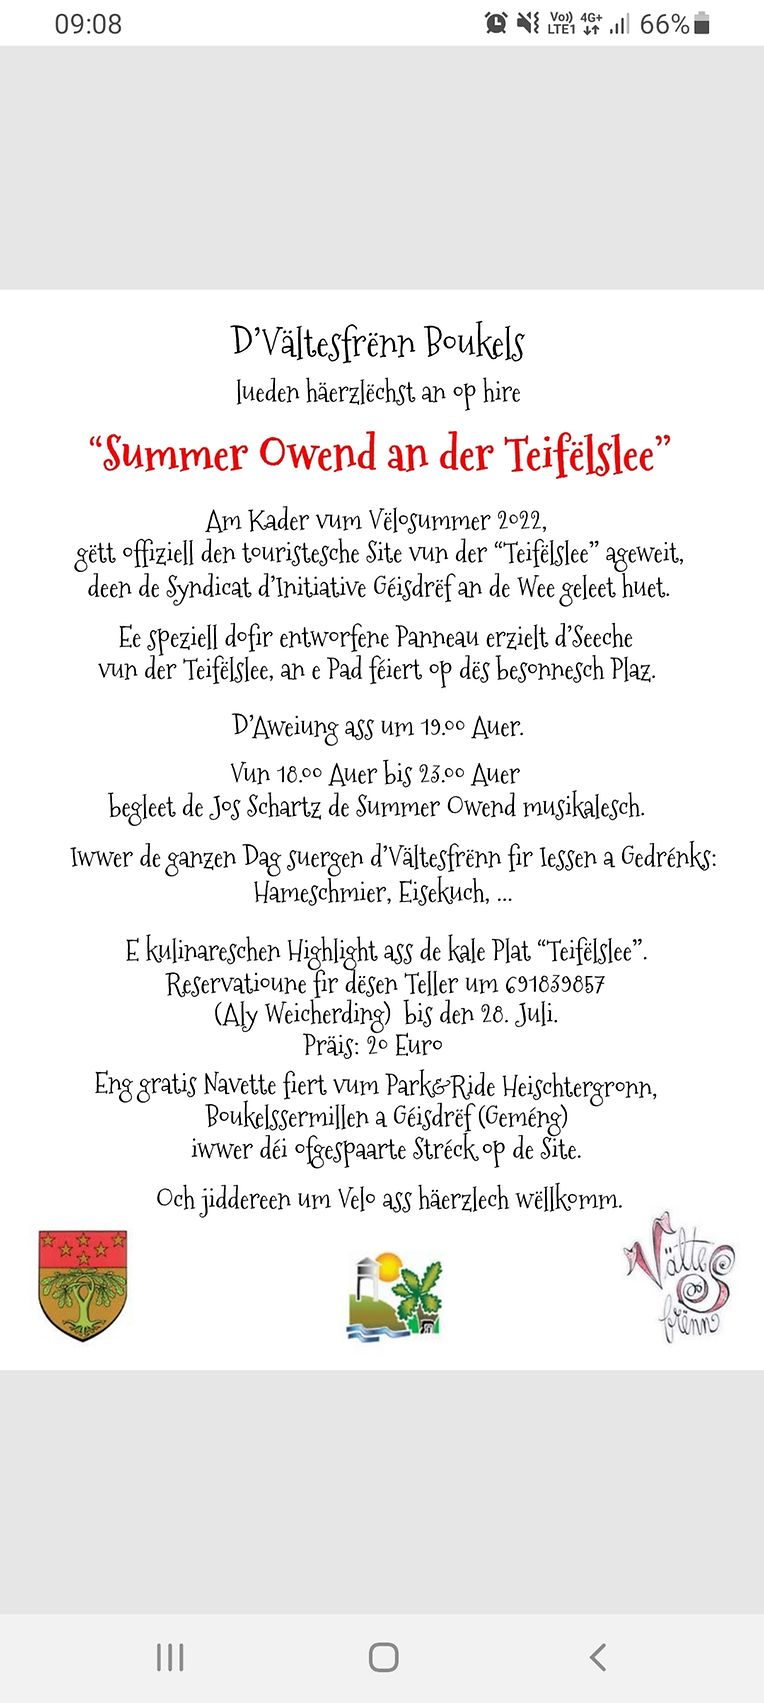 09:08
Vo)) 4G+ 66%
LTE1
D'Vältesfrënn Boukels
lueden häerzlëchst an op hire
“Summer Owend an der Teifëlslee”
Am Kader vum Vëlosummer 2022,
gëtt offiziell den touristesche Site vun der “Teifëlslee” ageweit,
deen de Syndicat d'Initiative Géisdrëf an de Wee geleet huet.
Ee speziell dofir entworfene Panneau erzielt d'Seeche
vun der Teifëlslee, an e Pad féiert op dës besonnesch Plaz.
D'Aweiung ass um 19.00 Auer.
Vun 18.00 Auer bis 23.00 Auer
begleet de Jos Schartz de Summer Owend musikalesch.
Iwwer de ganzen Dag suergen d'Vältesfrënn fir Iessen a Gedrénks:
Hameschmier, Eisekuch, ...
E kulinareschen Highlight ass de kale Plat “Teifëlslee”.
Reservatioune fir dësen Teller um 691839857
(Aly Weicherding) bis den 28. Juli.
Präis: 20 Euro
Eng gratis Navette fiert vum Park&Ride Heischtergronn,
Boukelssermillen a Géisdrëf (Geméng)
iwwer déi ofgespaarte Stréck op de Site.
Och jiddereen um Velo ass häerzlech wëllkomm.
Vältes
frënn